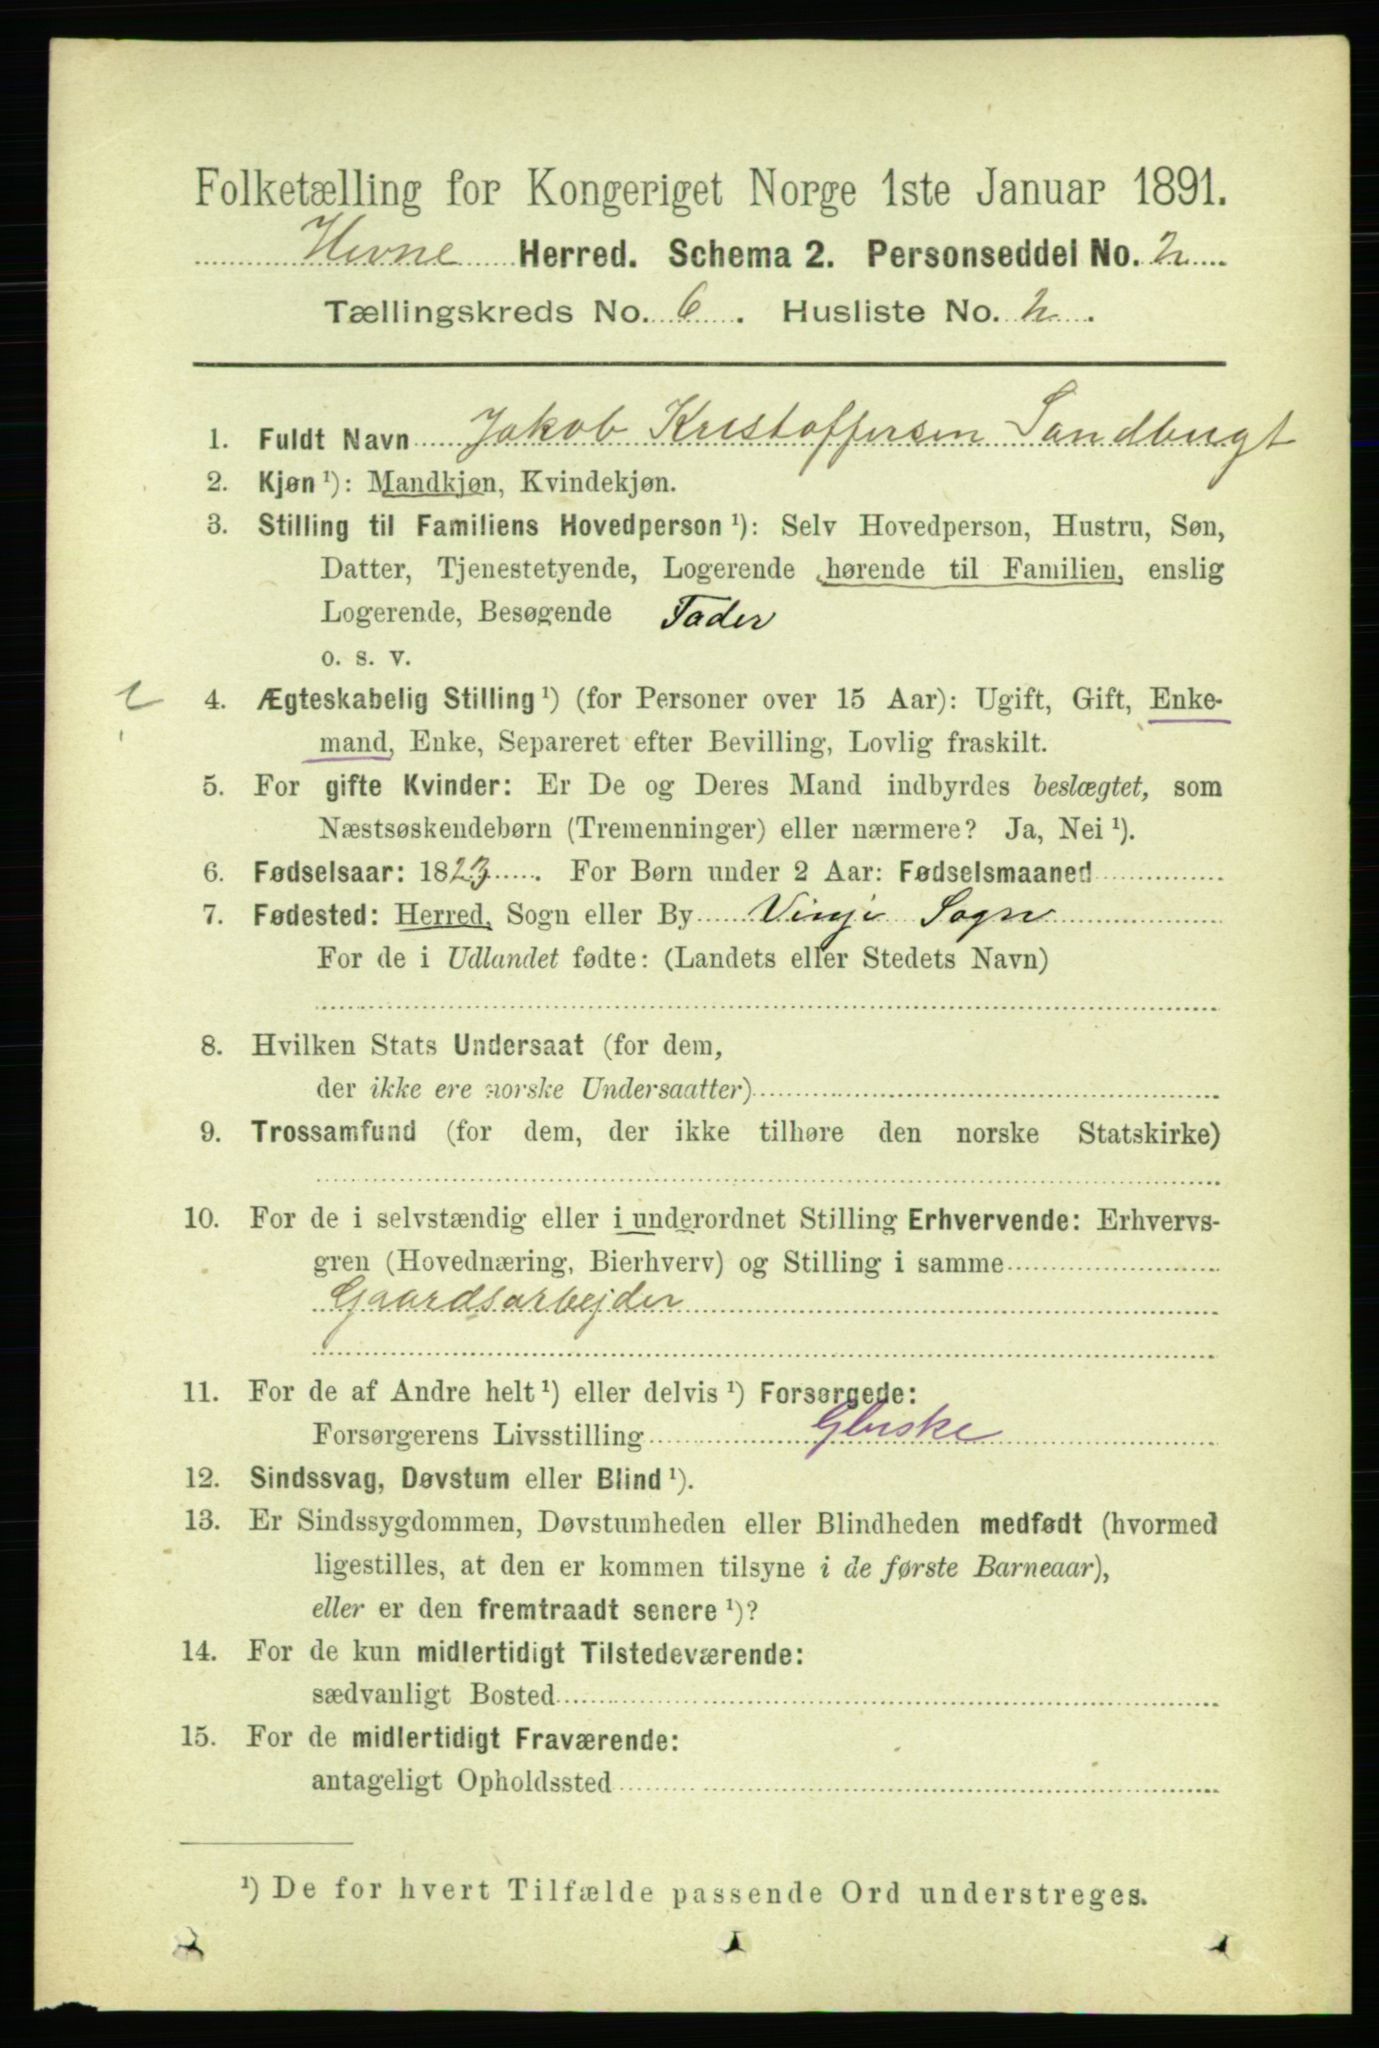 Folketælling for Kongeriget Norge 1ste Januar 1891.
Hevne Herred. Schema 2. Personseddel No. 2
Tællingskreds No. 6. Husliste No. 2.
1. Fuldt Navn Jakob Kristoffersen Sandbugt
2. Kjøn ¹): Mandkjøn, Kvindekjøn.
3. Stilling til Familiens Hovedperson ¹): Selv Hovedperson, Hustru, Søn,
Datter, Tjenestetyende, Logerende hørende til Familien, enslig
Logerende, Besøgende Fader
o. s. v.
4. Ægteskabelig Stilling ¹) (for Personer over 15 Aar): Ugift, Gift, Enke-
mand, Enke, Separeret efter Bevilling, Lovlig fraskilt.
5. For gifte Kvinder: Er De og Deres Mand indbyrdes beslægtet, som
Næstsøskendebørn (Tremenninger) eller nærmere? Ja, Nei ¹).
6. Fødselsaar: 1823. For Børn under 2 Aar: Fødselsmaaned
7. Fødested: Herred, Sogn eller By Vinje Sogn
For de i Udlandet fødte: (Landets eller Stedets Navn)
8. Hvilken Stats Undersaat (for dem,
der ikke ere norske Undersaatter)
9. Trossamfund (for dem, der ikke tilhøre den norske Statskirke)
10. For de i selvstændig eller i underordnet Stilling Erhvervende: Erhvervs-
gren (Hovednæring, Bierhverv) og Stilling i samme
Gaardsarbejder
11. For de af Andre helt ¹) eller delvis ¹) Forsørgede:
Forsørgerens Livsstilling
12. Sindssvag, Døvstum eller Blind ¹).
13. Er Sindssygdommen, Døvstumheden eller Blindheden medfødt (hvormed
ligestilles, at den er kommen tilsyne i de første Barneaar),
eller er den fremtraadt senere ¹)?
14. For de kun midlertidigt Tilstedeværende:
sædvanligt Bosted
15. For de midlertidigt Fraværende:
antageligt Opholdssted
¹) De for hvert Tilfælde passende Ord understreges.